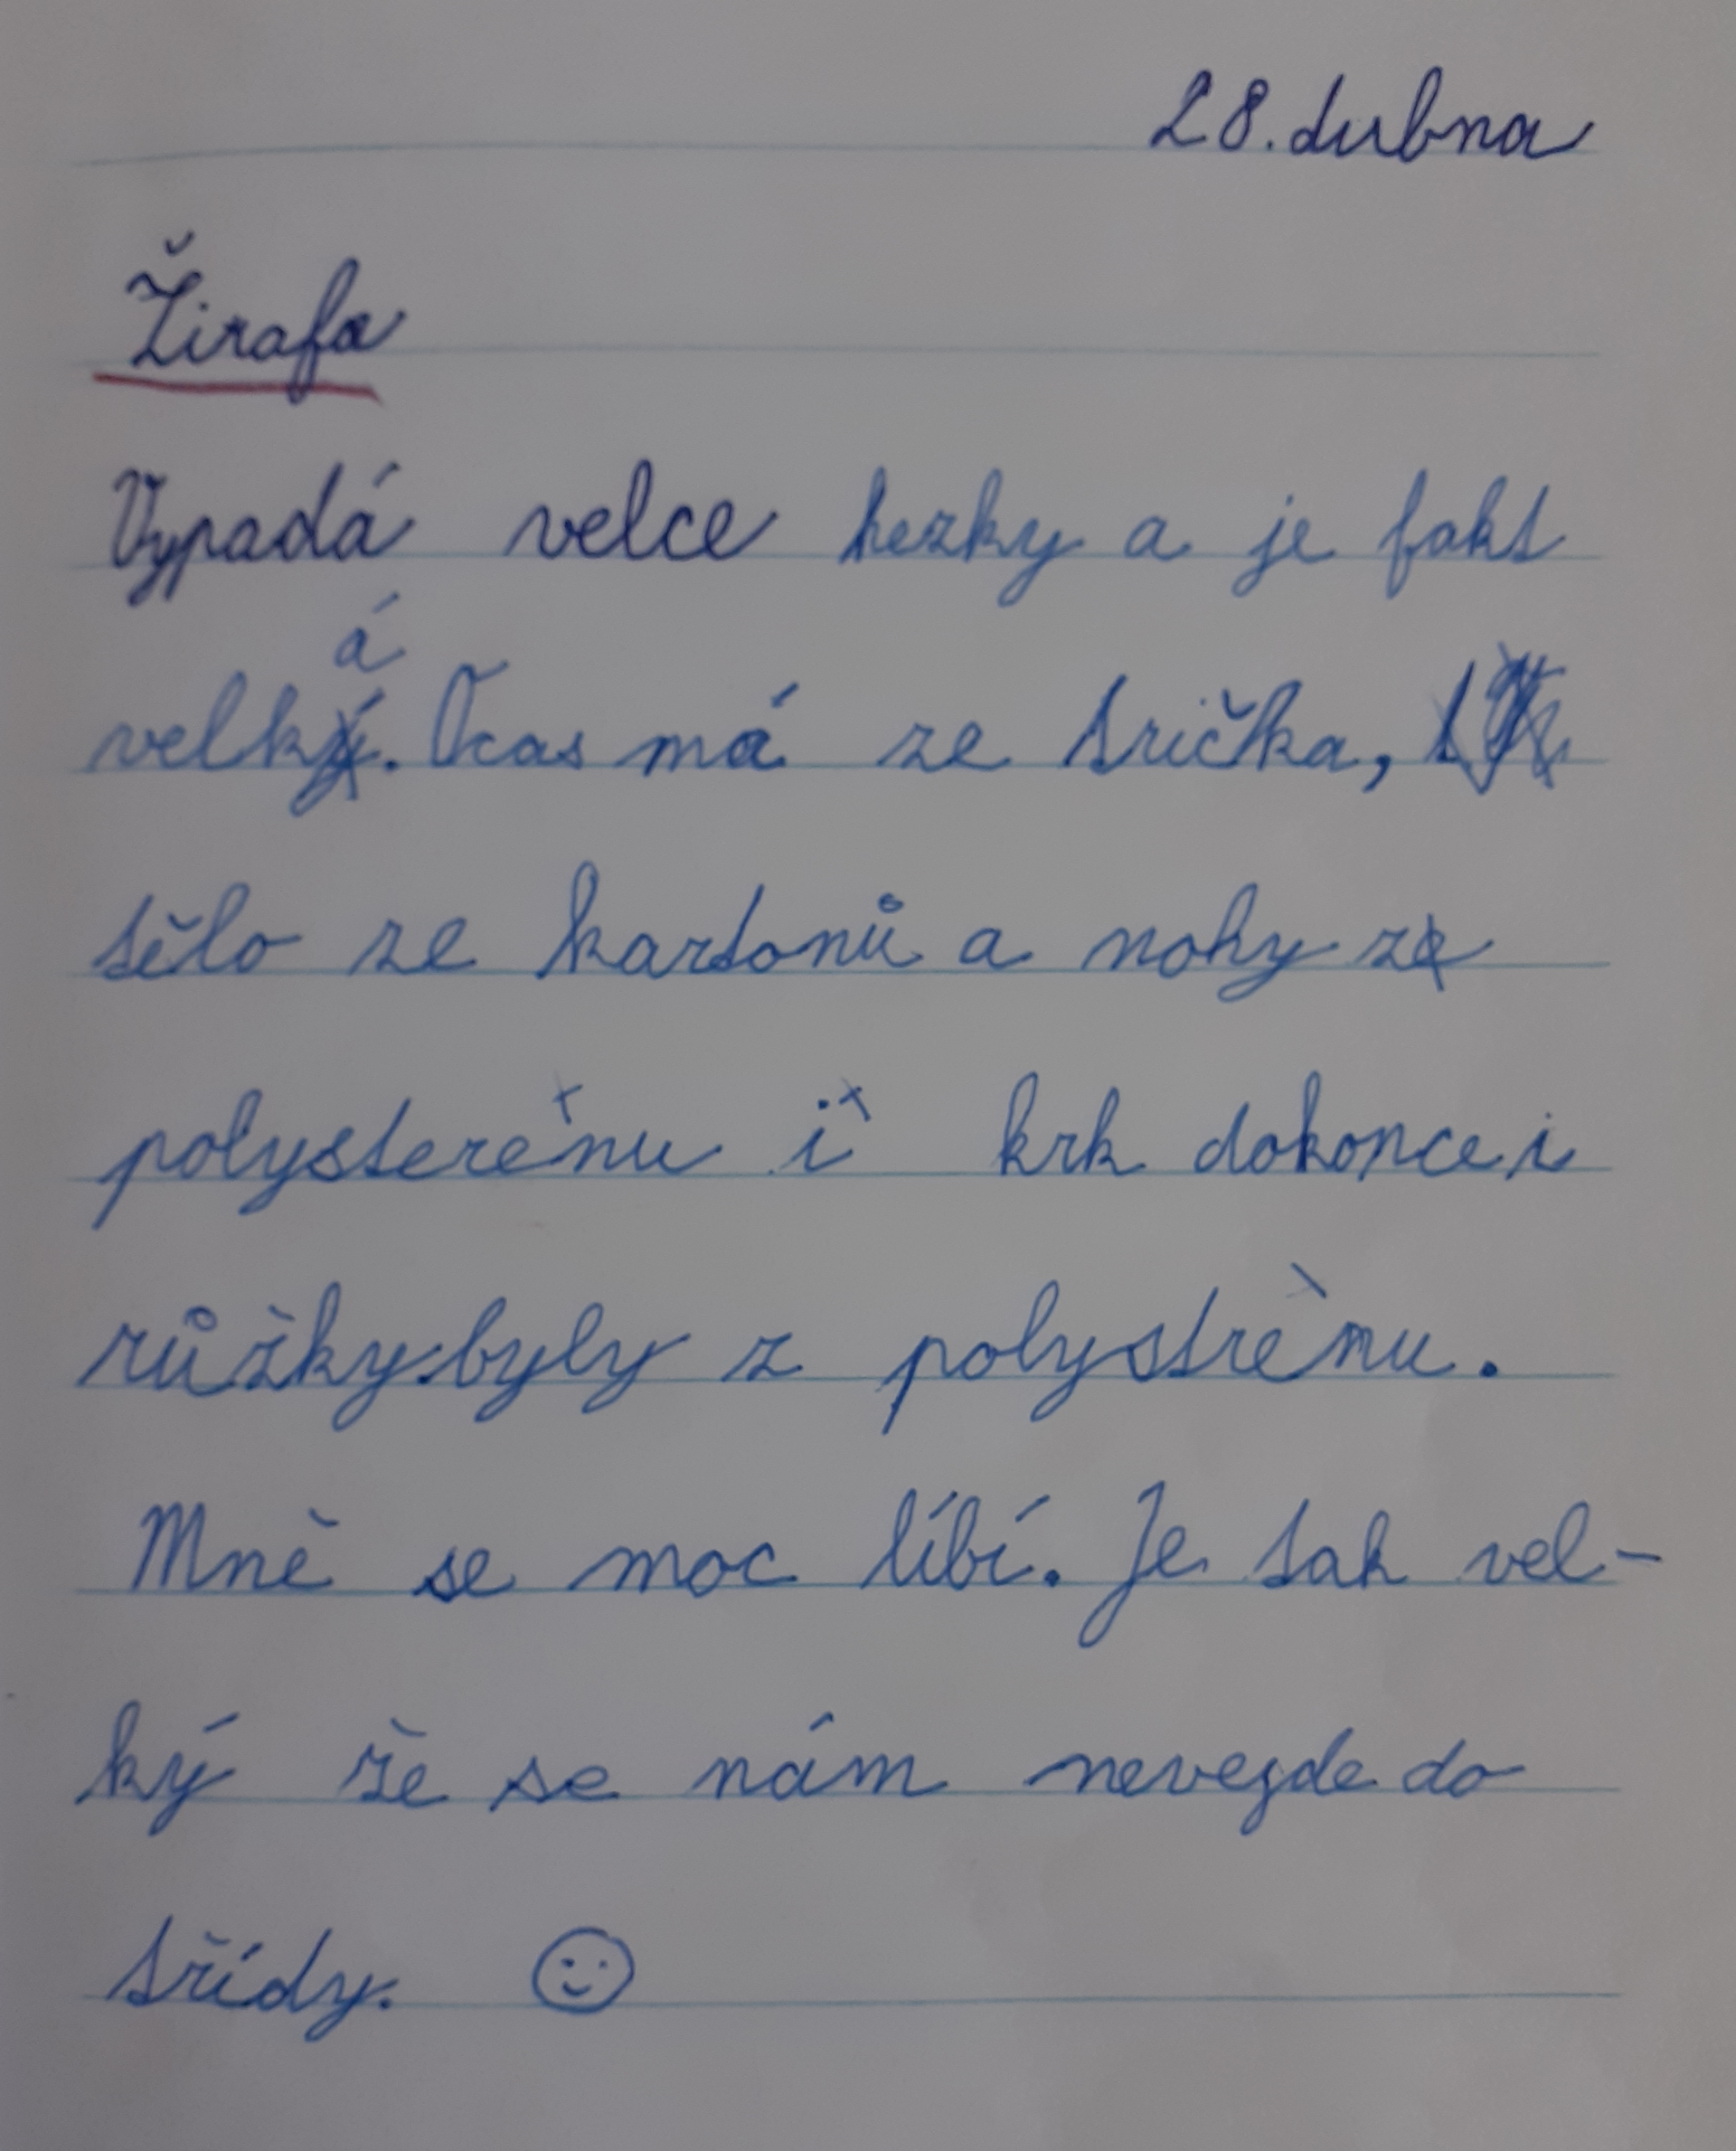 28. dubna
Žirafa
Vypadá velce hezky a je fakt
velká. Ocas má ze trička,
tělo ze kartonů a nohy z
polysterénu i krk dokonce i
růžky byly z polystrénu.
Mně se moc líbí. Je tak vel-
ký že se nám nevejde do
třídy. ☺